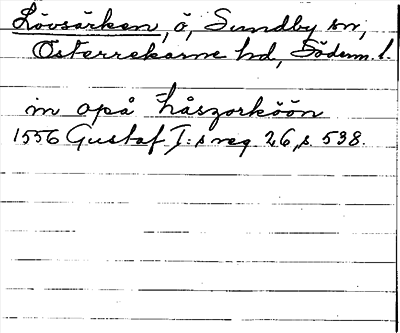 Lövsärken, ö, Sundby sn,
Österrekarne hd, Söderm. l.
in opå håszorköön
1556 Gustaf I:s reg. 26, s. 538.